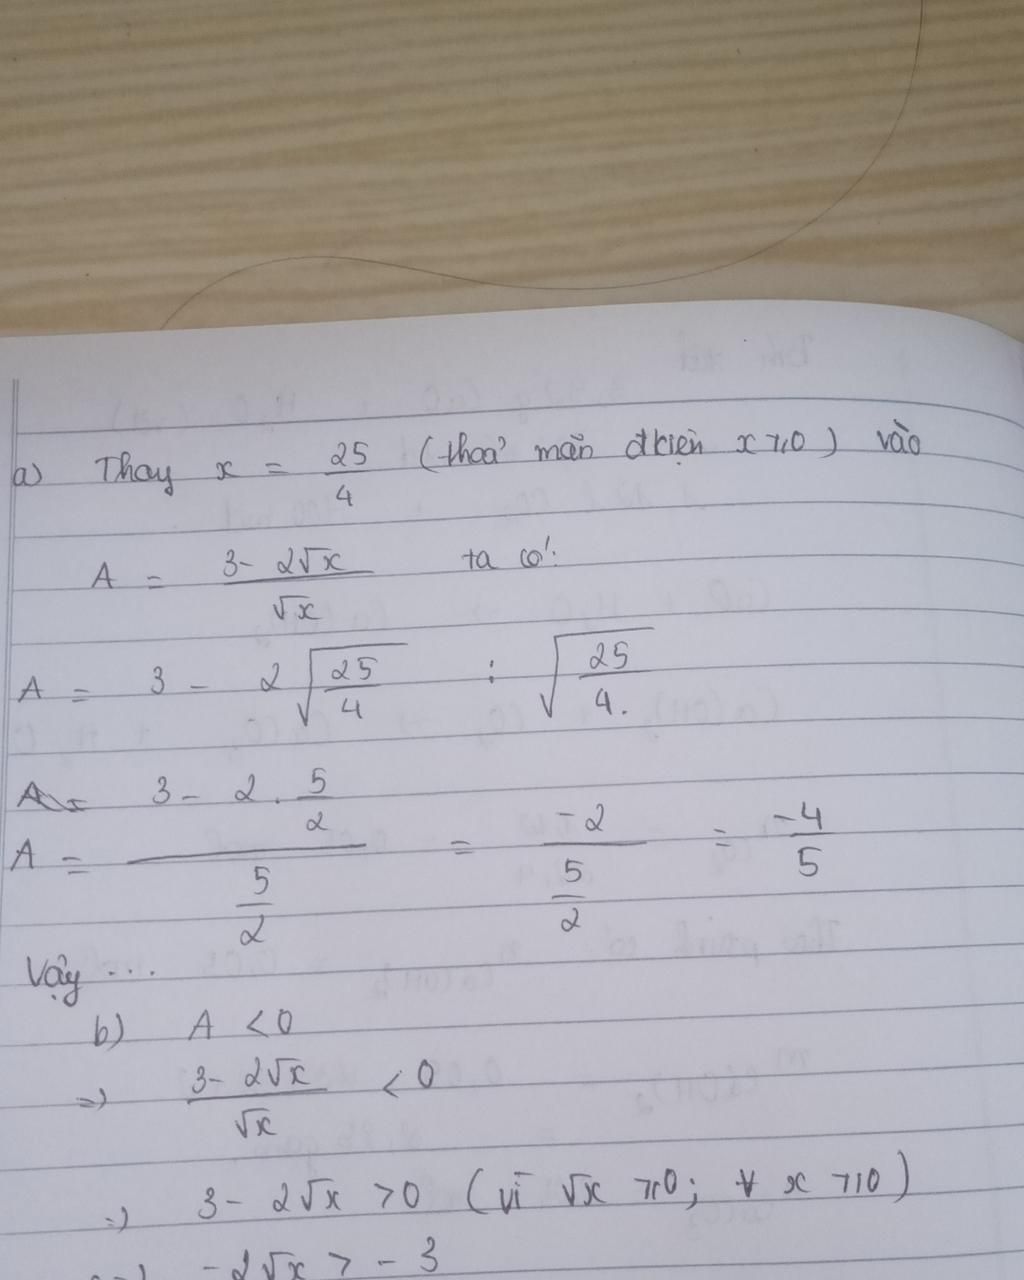 a) Thay x = 25/4 (thoả mãn đkiện x ⩾ 0) vào
A = (3 - 2√x)/√x ta có:
A = 3 - 2√(25/4) : √(25/4).
A = 3 - 2 . 5/2
A = (3 - 2 . 5/2)/(5/2) = -2/(5/2) = -4/5
Vậy ...
b) A < 0
=> (3 - 2√x)/√x < 0
=> 3 - 2√x > 0 (vì √x ⩾ 0; ∀ x ⩾ 0)
-2√x > - 3